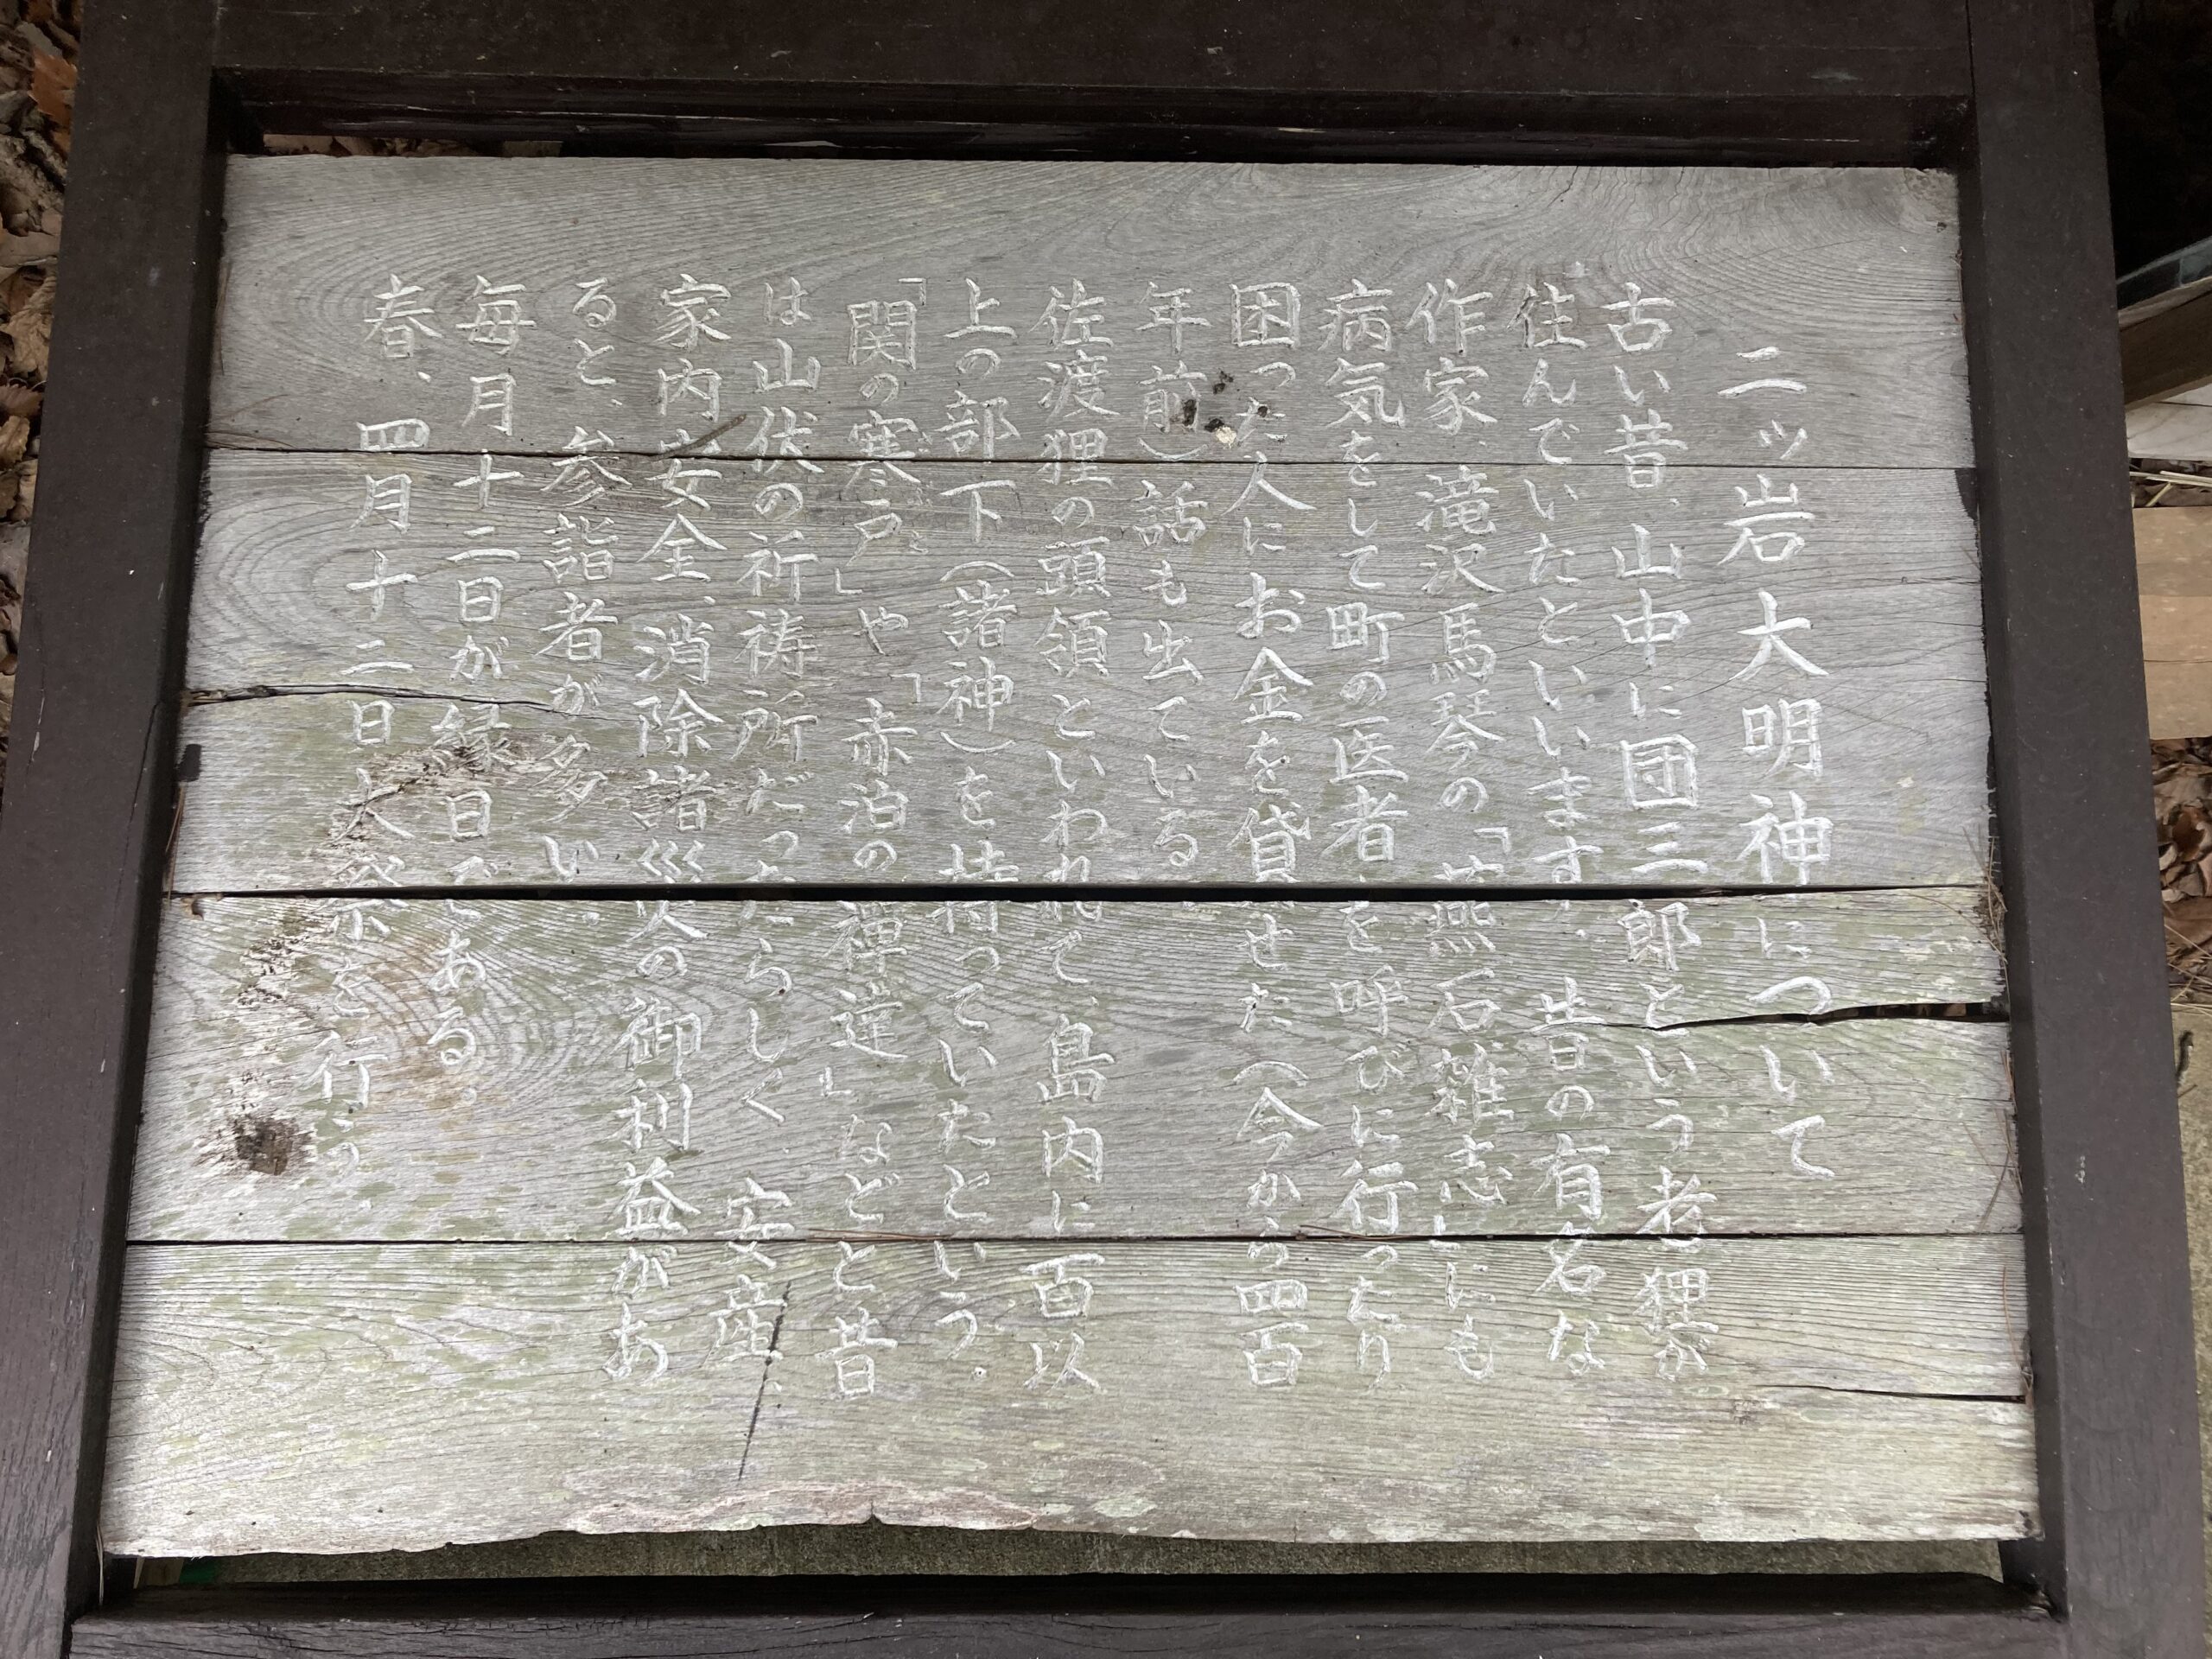 二ッ岩大明神について
古い昔、山中に団三郎という老狸が
住んでいたといいます。昔の有名な
作家、滝沢馬琴の「燕石雑志」にも
病気をして町の医者を呼びに行ったり
困った人にお金を貸せた（今から四百
年前）話も出ている。
佐渡狸の頭領といわれて、島内に百以
上の部下（諸神）を持っていたという。
「関の寒戸」や「赤泊の禅達」などと昔
は山伏の祈祷所だったらしく安産、
家内安全、消除諸災の御利益があ
ると、参詣者が多い。
毎月十二日が縁日である。
春、四月十二日大祭を行う。